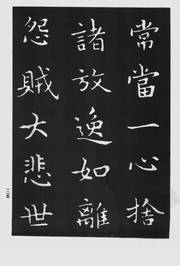 常當一心捨
諸放逸如離
怨賊大悲世